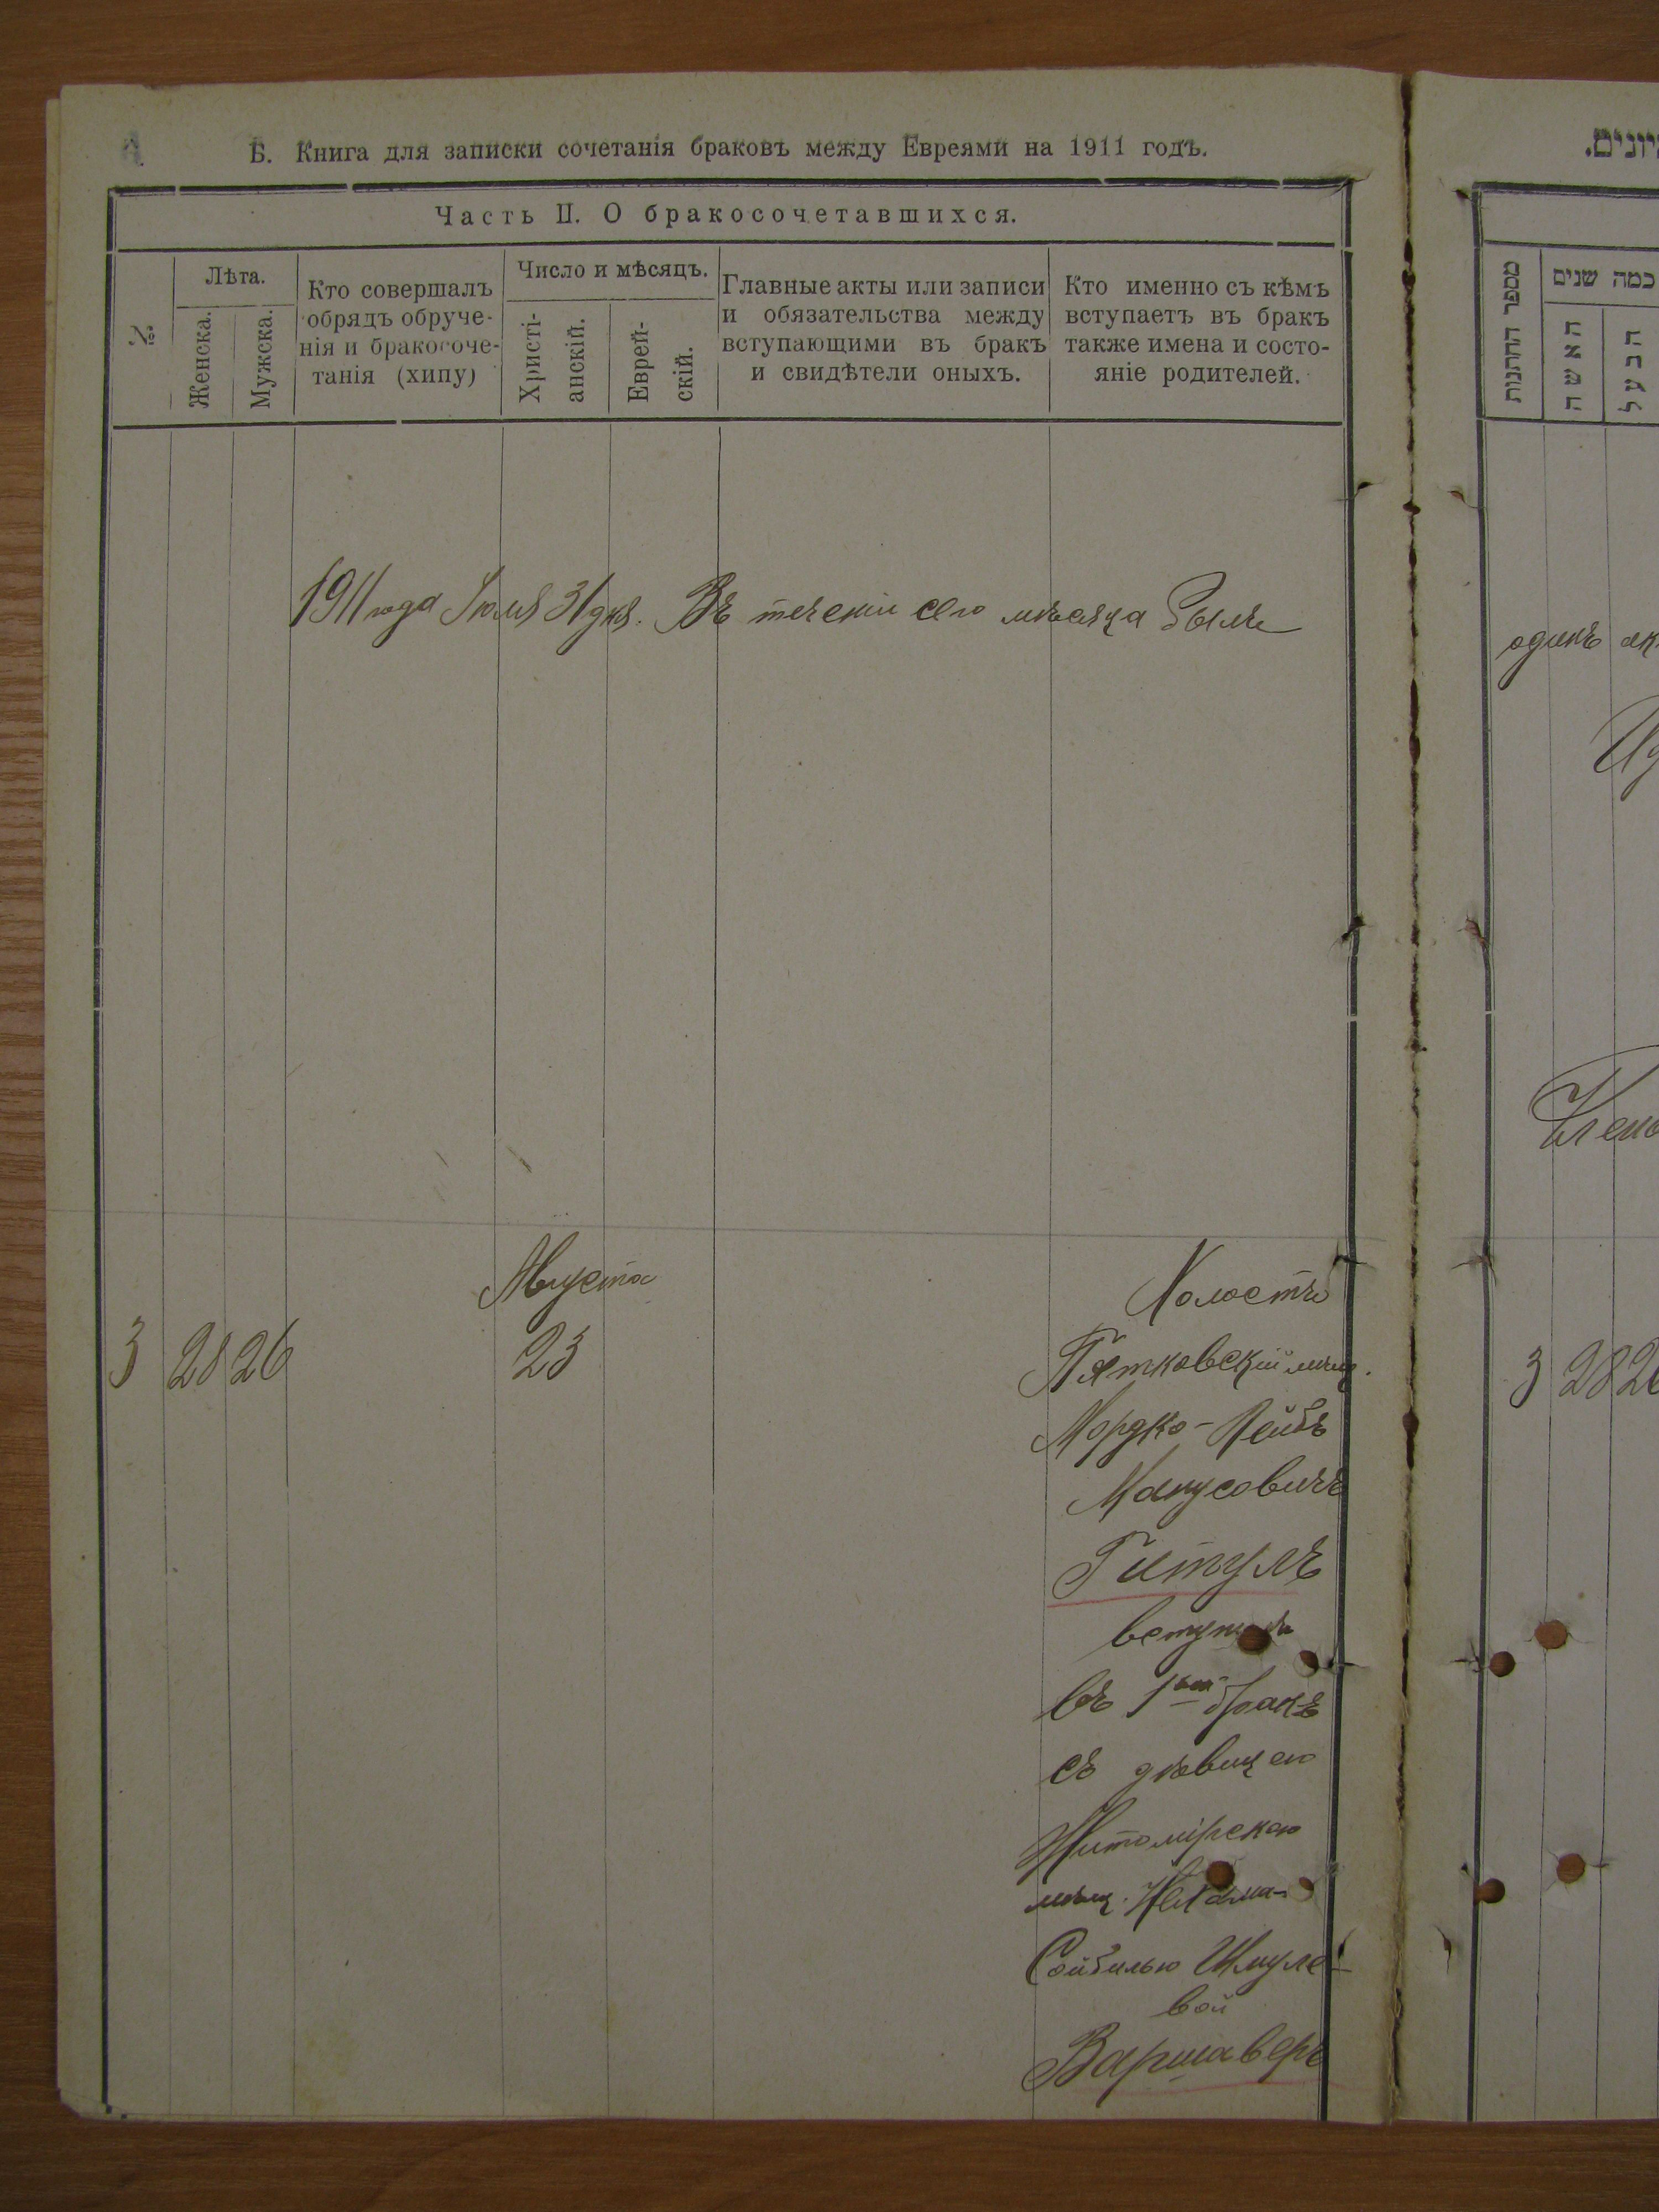 Б. Книга для записки сочетанія браковъ между Евреями на 1911 годъ.
Часть II. О бракосочетавшихся.
№
Лѣта.
Женска.
Мужска.
Кто совершалъ
обрядъ обруче-
нія и бракосоче-
танія (хипу)
Число и мѣсяцъ.
Христі-
анскій.
Еврей-
скій.
Главные акты или записи
и обязательства между
вступающими въ бракъ
и свидѣтели оныхъ.
Кто именно съ кѣмъ
вступаетъ въ бракъ
также имена и состо-
яніе родителей.
1911 года Іюля 31 дня. Въ теченіи сего мѣсяца былъ
Августа
3 28 26 23
Холостъ
Пятковскій мѣщ.
Мордко-Лейбъ
Манусовичъ
Гитулъ
вступилъ
въ 1ый бракъ
съ дѣвицею
Житомірскою
мѣщ. Нехама-
Сойбилью Шмуле-
вой
Варшаверъ
מספר החתנות
כמה שנים
האשה
הבעל
одинъ
3 28